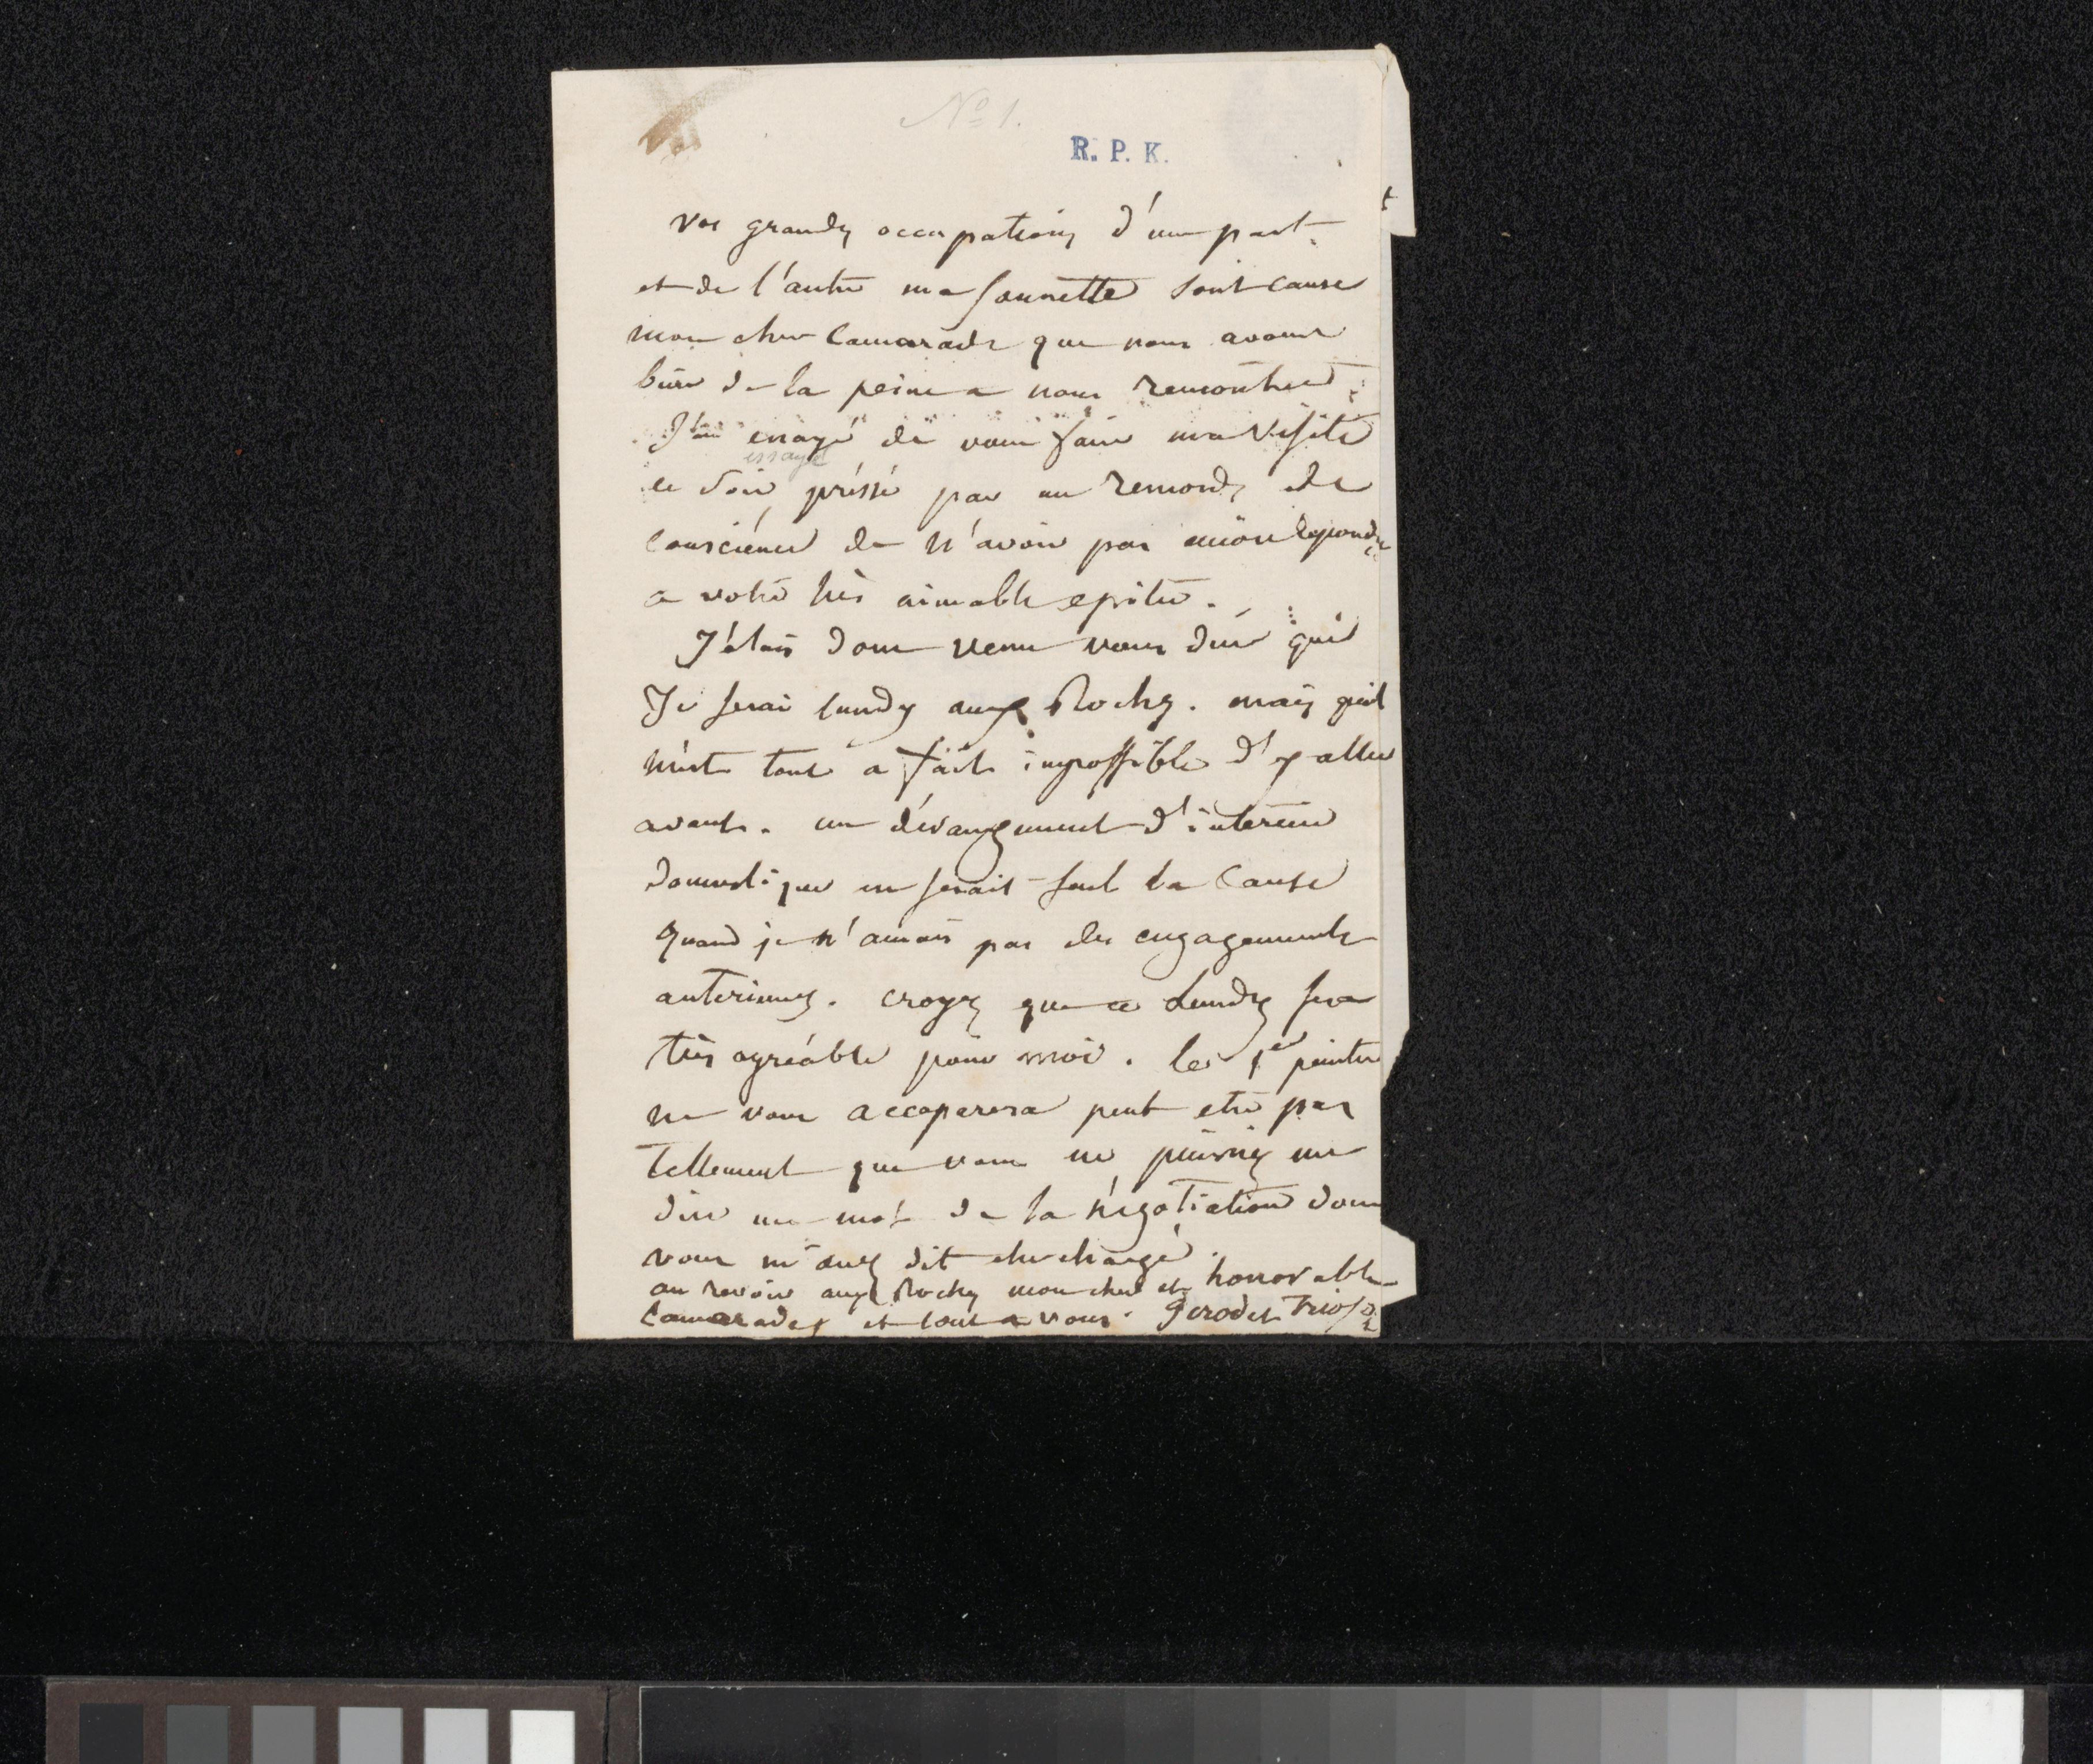 N° 1.
R. P. K.
vos grandes occupations d'une part
et de l'autre ma sonnette sont cause
mon cher Camarade que nous avons
bien de la peine a nous rencontrer.
J'ai essayé de vous faire ma visite
essayé
ce soir pressé par un remords de
conscience de n'avoir pas encore repondu
a votre très aimable epitre.
J'étais donc venu vous dire que
Je serai lundy aux Roches. mais qu'il
m'est tout a fait impossible d'y aller
avant. un dérangement d'interieur
domestique en serait seul la cause
quand je n'aurais pas des engagements
anterieurs. croyez que ce Lundy sera
très agréable pour moi. le 1er peintre
ne vous accaparera peut etre pas
tellement que vous ne puissiez me
dire un mot de la négotiation dont
vous m'avez dit etre chargé.
au revoir aux Roches mon cher et honorable
Camarade et tout a vous. Girodet Trioson